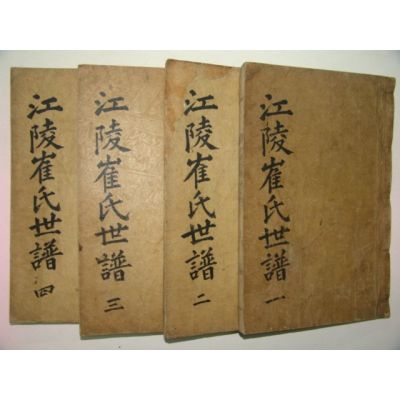 江陵崔氏世譜 一
江陵崔氏世譜 二
江陵崔氏世譜 三
江陵崔氏世譜 四